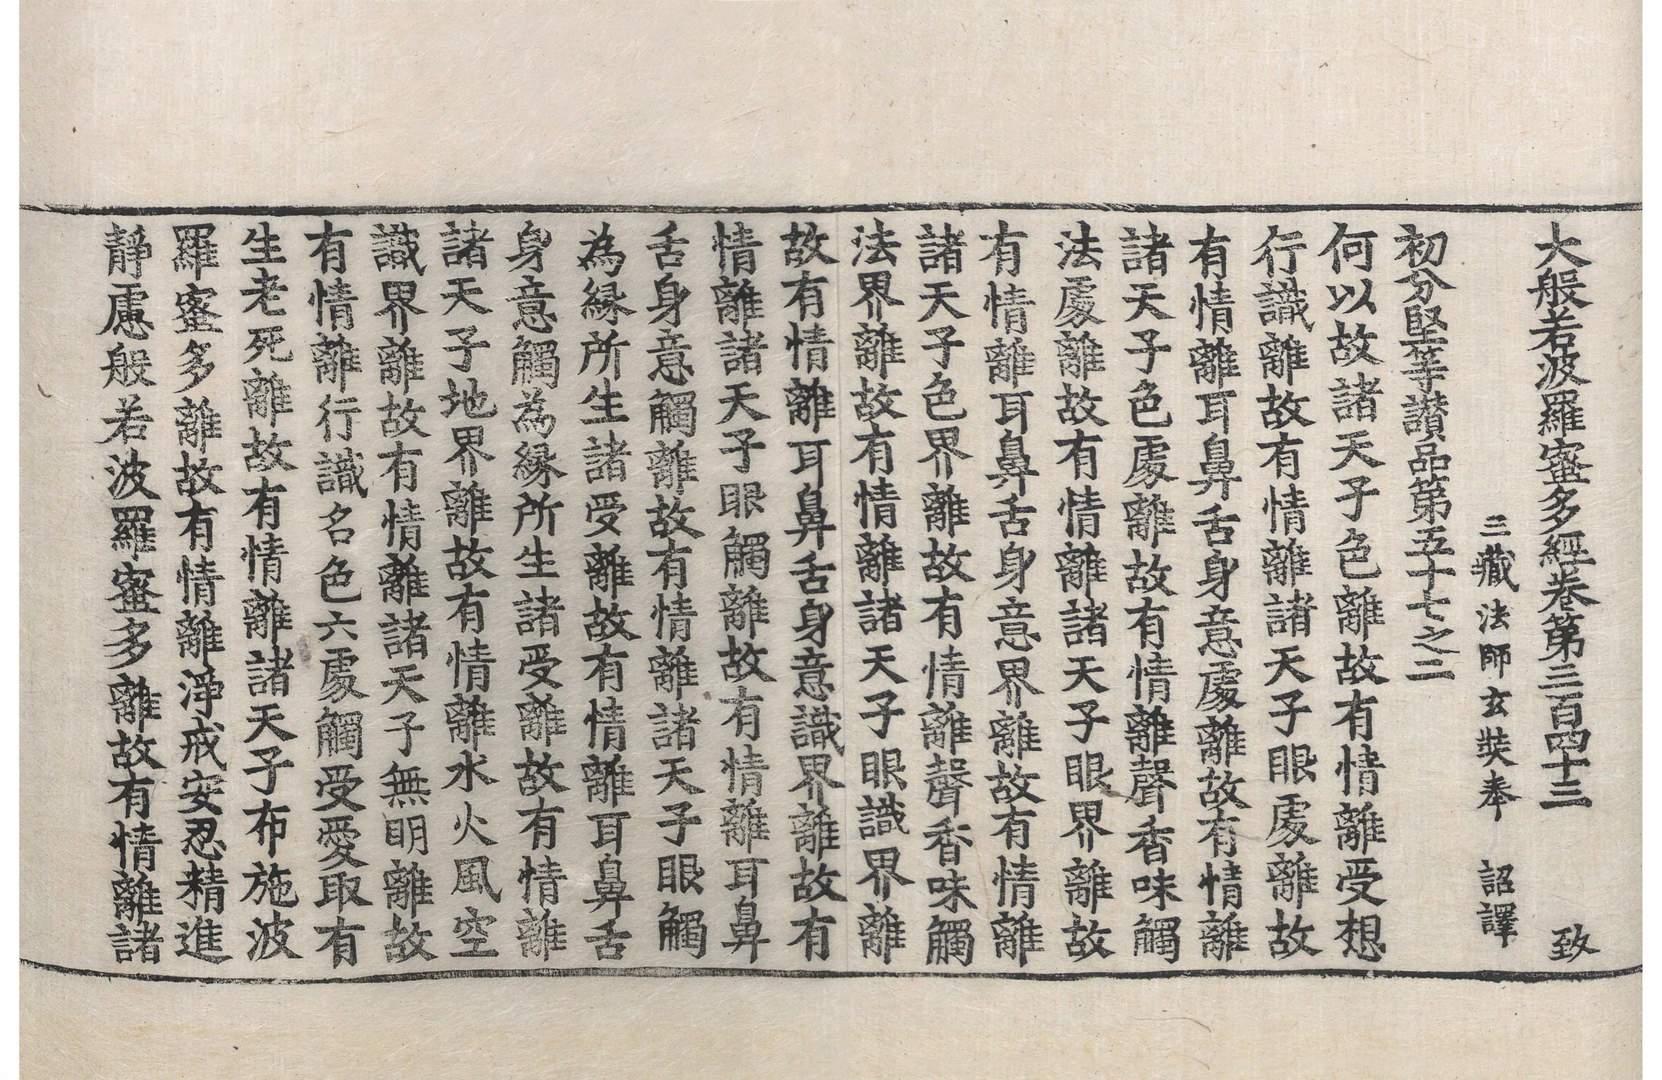 大般若波羅蜜多經卷第三百四十三 致
三藏法師玄奘奉 詔譯
初分堅等讃品第五十七之二
何以故諸天子色離故有情離受想
行識離故有情離諸天子眼處離故
有情離耳鼻舌身意處離故有情離
諸天子色處離故有情離聲香味觸
法處離故有情離諸天子眼界離故
有情離耳鼻舌身意界離故有情離
諸天子色界離故有情離聲香味觸
法界離故有情離諸天子眼識界離
故有情離耳鼻舌身意識界離故有
情離諸天子眼觸離故有情離耳鼻
舌身意觸離故有情離諸天子眼觸
為緣所生諸受離故有情離耳鼻舌
身意觸為緣所生諸受離故有情離
諸天子地界離故有情離水火風空
識界離故有情離諸天子無明離故
有情離行識名色六處觸受愛取有
生老死離故有情離諸天子布施波
羅蜜多離故有情離淨戒安忍精進
靜慮般若波羅蜜多離故有情離諸